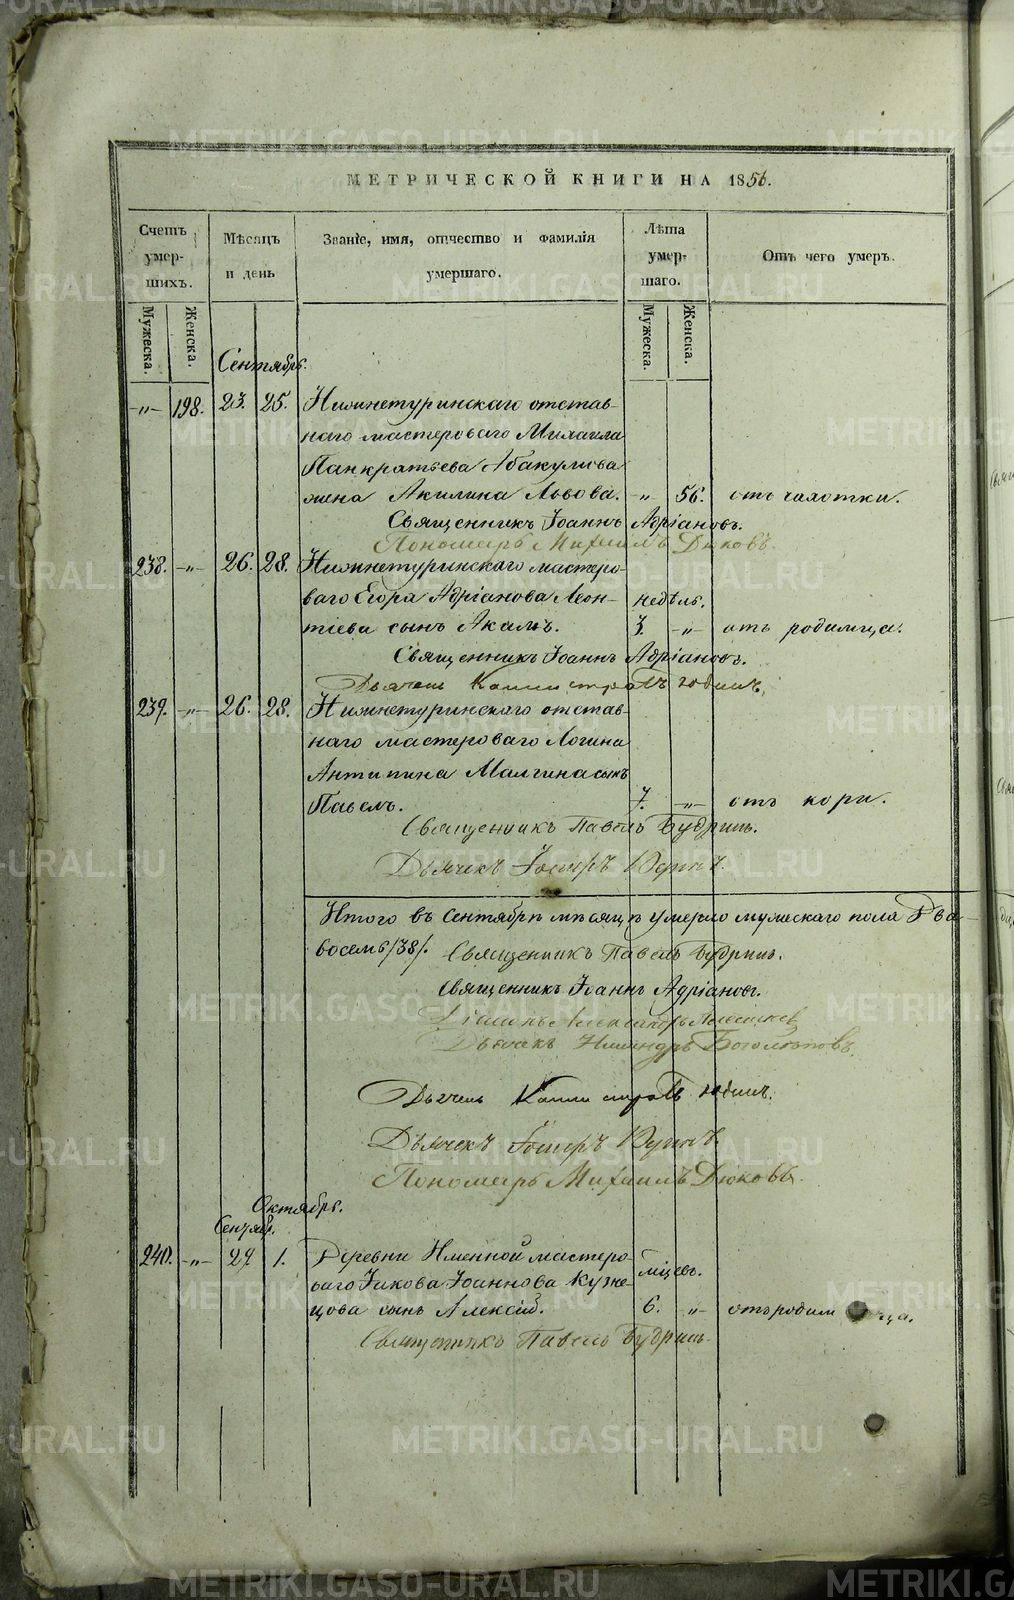 МЕТРИЧЕСКОЙ КНИГИ НА 1856.
Счетъ умерших. Мѣсяцъ и день Званіе, имя, отчество и фамилія умершаго. Лѣта умершаго. Отъ чего умеръ.
Мужеска. Женска. Мужеска. Женска.
Сентябрь.
„ 198. 23. 25. Нижнетуринскаго отстав-
наго мастероваго Михаила
Панкратьева Абакумова
жена Акилина Львова. „ 56. отъ чахотки.
Священникъ Іоаннъ Адріановъ.
Пономарь Михаилъ Дюковъ.
238. „ 26. 28. Нижнетуринскаго мастеро-
ваго Егора Адріанова Леон- недѣль.
тіева сынъ 3. „ отъ родимца.
Священникъ Іоаннъ Адріановъ.
Дьячекъ
239. „ 26. 28. Нижнетуринскаго отстав-
наго мастероваго Логина
Антипина Малгина сынъ
Павелъ. 7. „ отъ кори.
Священникъ Павелъ Будринъ.
Дьячекъ
Итого въ Сентябрѣ мѣсяцѣ умерло мужескаго пола два-
восемь /38/. Священникъ Павелъ Будринъ.
Священникъ Іоаннъ Адріановъ.
Діаконъ Александръ
Дьячекъ Никандръ Боголюповъ.
Дьячекъ
Дьячекъ
Пономарь Михаилъ Дюковъ.
Октябрь.
Сентябр.
240. „ 29 1. Деревни Именной мастеро-
ваго Іакова Іоаннова Кузне- мѣсяц.
цова сынъ Алексій. 6. „ отъ родимца.
Священникъ Павелъ Будринъ
METRIKI.GASO-URAL.RU